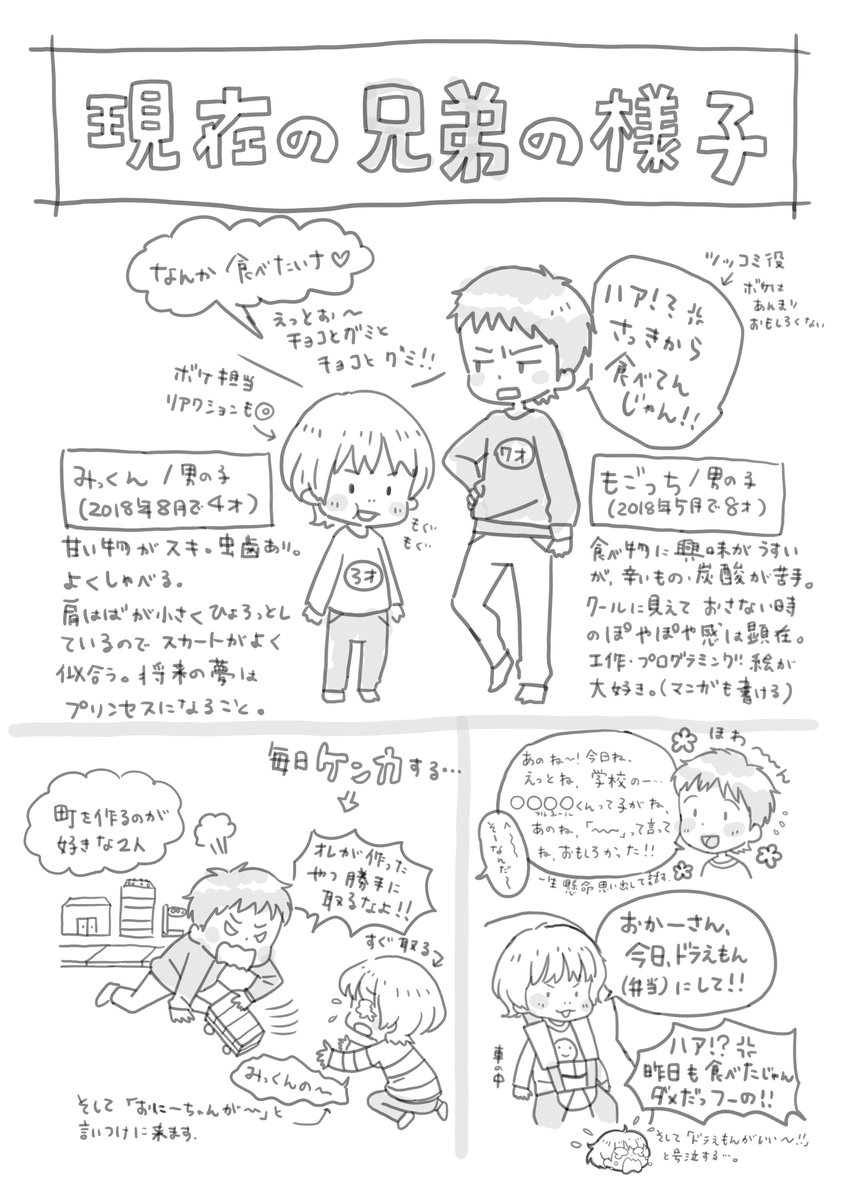 現在の兄弟の様子
なんか食べたいナ♡
えっとぉ〜
チョコとグミと
チョコとグミ!!
ボケ担当
リアクションも◎
ツッコミ役
ボケは
あんまり
おもしろくない
ハア!?
さっきから
食べてん
じゃん!!
7才
3才
もぐ
もぐ
みっくん/男の子
(2018年8月で4才)
甘い物がスキ。虫歯あり。
よくしゃべる。
肩はばが小さくひょろっとし
ているのでスカートがよく
似合う。将来の夢は
プリンセスになること。
もごっち/男の子
(2018年5月で8才)
食べ物に興味がうすい
が、辛いもの・炭酸が苦手。
クールに見えておさない時
のぽやぽや感は顕在。
工作・プログラミング・絵が
大好き。(マンガも書ける)
毎日ケンカする…
町を作るのが
好きな2人
オレが作った
やつ勝手に
取るなよ!!
すぐ取る
みっくんの〜
そして「おにーちゃんが〜」と
言いつけに来ます.
ほわ
あのね〜!今日ね、
えっとね、学校の…
○○○○くんって子がね、
フルネーム
あのね、「〜〜」って言って
ね、おもしろかった!!
へぇ〜
そーなんだ〜
一生懸命思い出して話す.
おかーさん、
今日、ドラえもん
(弁当)にして!!
車の中
ハア!?
昨日も食べたじゃん
ダメだっフーの!!
そして「ドラえもんがいい〜!!」
と号泣する…。